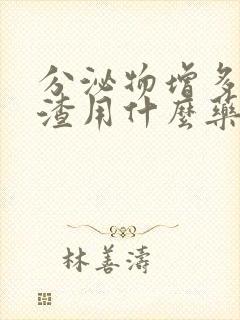 分泌物增多
渣用什麼藥
林善濤